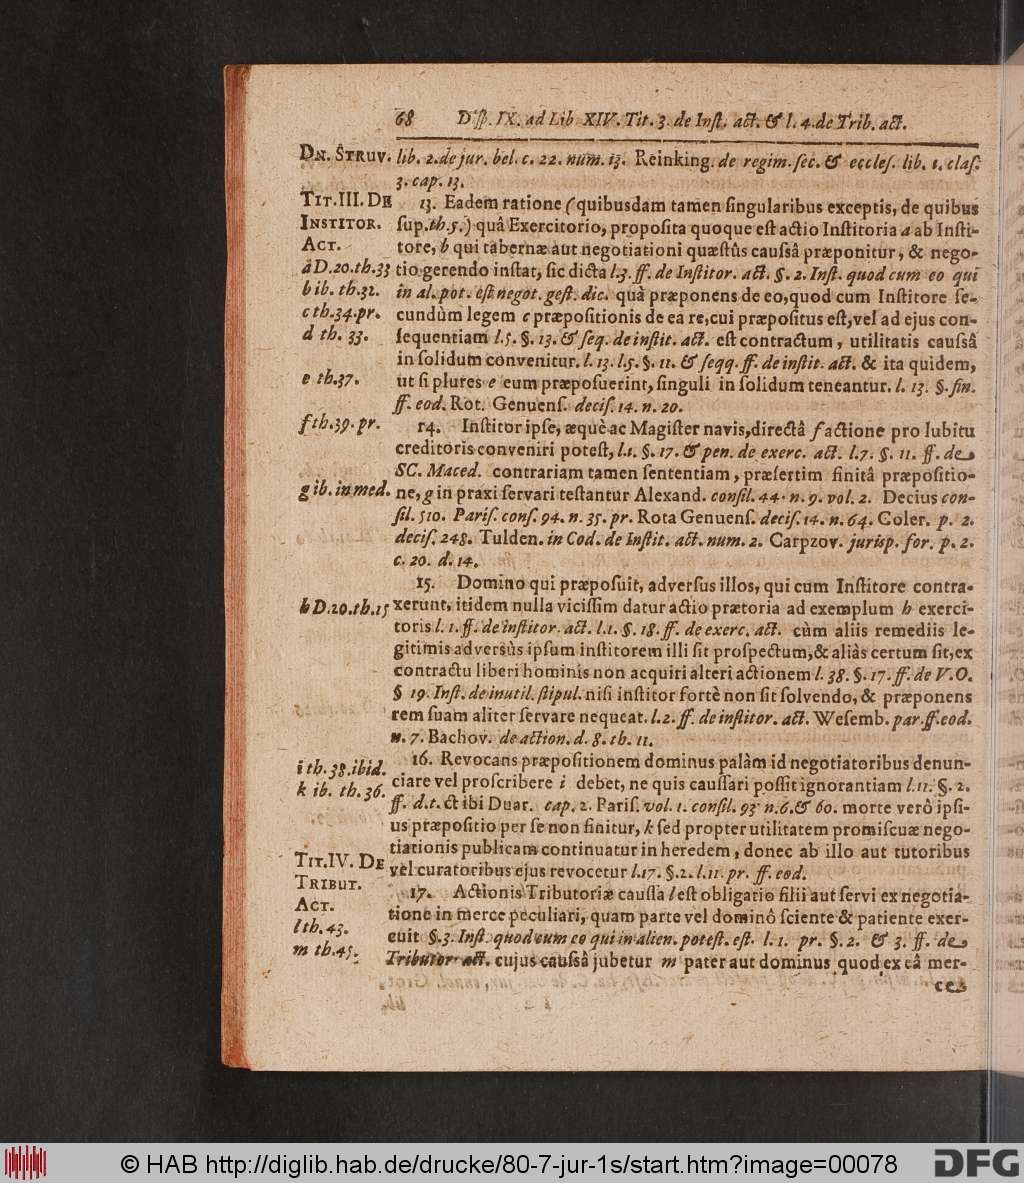 68 Disp. IX. ad Lib XIV. Tit. 3. de Inst. act. & l. 4. de Trib. act.
DN. STRUV. lib. 2. de jur. bel. c. 22. num. 13. Reinking. de regim. sec. & eccles. lib. 1. clas.
3. cap. 13.
TIT. III. DE 13. Eadem ratione (quibusdam tamen singularibus exceptis, de quibus
INSTITOR. sup. th. 5.) quâ Exercitorio, proposita quoque est actio Institoria a ab Insti-
ACT. tore, b qui tabernæ aut negotiationi quæstûs caussâ præponitur, & nego-
a D. 20. th. 33 tio gerendo instat, sic dicta l. 3. ff. de Institor. act. §. 2. Inst. quod cum eo qui
b ib. th. 32. in al. pot. est negot. gest. dic. quâ præponens de eo, quod cum Institore se-
c th. 34. pr. cundùm legem c præpositionis de ea re, cui præpositus est, vel ad ejus con-
d th. 33. sequentiam l. 5. §. 13. & seq. de instit. act. est contractum, utilitatis caussâ
in solidum convenitur. l. 13. l. 5. §. 11. & seqq. ff. de instit. act. & ita quidem,
e th. 37. ut si plures e eum præposuerint, singuli in solidum teneantur. l. 13. §. fin.
ff. eod. Rot. Genuens. decis. 14. n. 20.
f th. 39. pr. 14. Institor ipse, æquè ac Magister navis, directâ f actione pro lubitu
creditoris conveniri potest, l. 1. §. 17. & pen. de exerc. act. l. 7. §. 11. ff. de
SC. Maced. contrariam tamen sententiam, præsertim finitâ præpositio-
g ib. in med. ne, g in praxi servari testantur Alexand. consil. 44. n. 9. vol. 2. Decius con-
sil. 510. Paris. cons. 94. n. 35. pr. Rota Genuens. decis. 14. n. 64. Goler. p. 2.
decis. 248. Tulden. in Cod. de Instit. act. num. 2. Carpzov. jurisp. for. p. 2.
c. 20. d. 14.
15. Domino qui præposuit, adversus illos, qui cum Institore contra-
h D. 20. th. 15 xerunt, itidem nulla vicissim datur actio prætoria ad exemplum h exerci-
toris l. 1. ff. de institor. act. l. 1. §. 18. ff. de exerc. act. cùm aliis remediis le-
gitimis adversùs ipsum institorem illi sit prospectum, & aliàs certum sit, ex
contractu liberi hominis non acquiri alteri actionem l. 38. §. 17. ff. de V. O.
§ 19. Inst. de inutil. stipul. nisi institor fortè non sit solvendo, & præponens
rem suam aliter servare nequeat. l. 2. ff. de institor. act. Wesemb. par. ff. eod.
n. 7. Bachov. de action. d. 8. th. 11.
i th. 38. ibid. 16. Revocans præpositionem dominus palàm id negotiatoribus denun-
k ib. th. 36. ciare vel proscribere i debet, ne quis caussari possit ignorantiam l. 11. §. 2.
ff. d. t. et ibi Duar. cap. 2. Paris. vol. 1. consil. 93 n. 6. & 60. morte verò ipsi-
us præpositio per se non finitur, k sed propter utilitatem promiscuæ nego-
tiationis publicam continuatur in heredem, donec ab illo aut tutoribus
TIT. IV. DE vel curatoribus ejus revocetur l. 17. §. 2. l. 11. pr. ff. eod.
TRIBUT. 17. Actionis Tributoriæ caussa l est obligatio filii aut servi ex negotia-
ACT. tione in merce peculiari, quam parte vel dominô sciente & patiente exer-
l th. 43. cuit §. 3. Inst. quod cum eo qui in alien. potest. est. l. 1. pr. §. 2. & 3. ff. de
m th. 45. Tributor. act. cujus caussâ jubetur m pater aut dominus quod ex eâ mer-
ce
© HAB http://diglib.hab.de/drucke/80-7-jur-1s/start.htm?image=00078 DFG